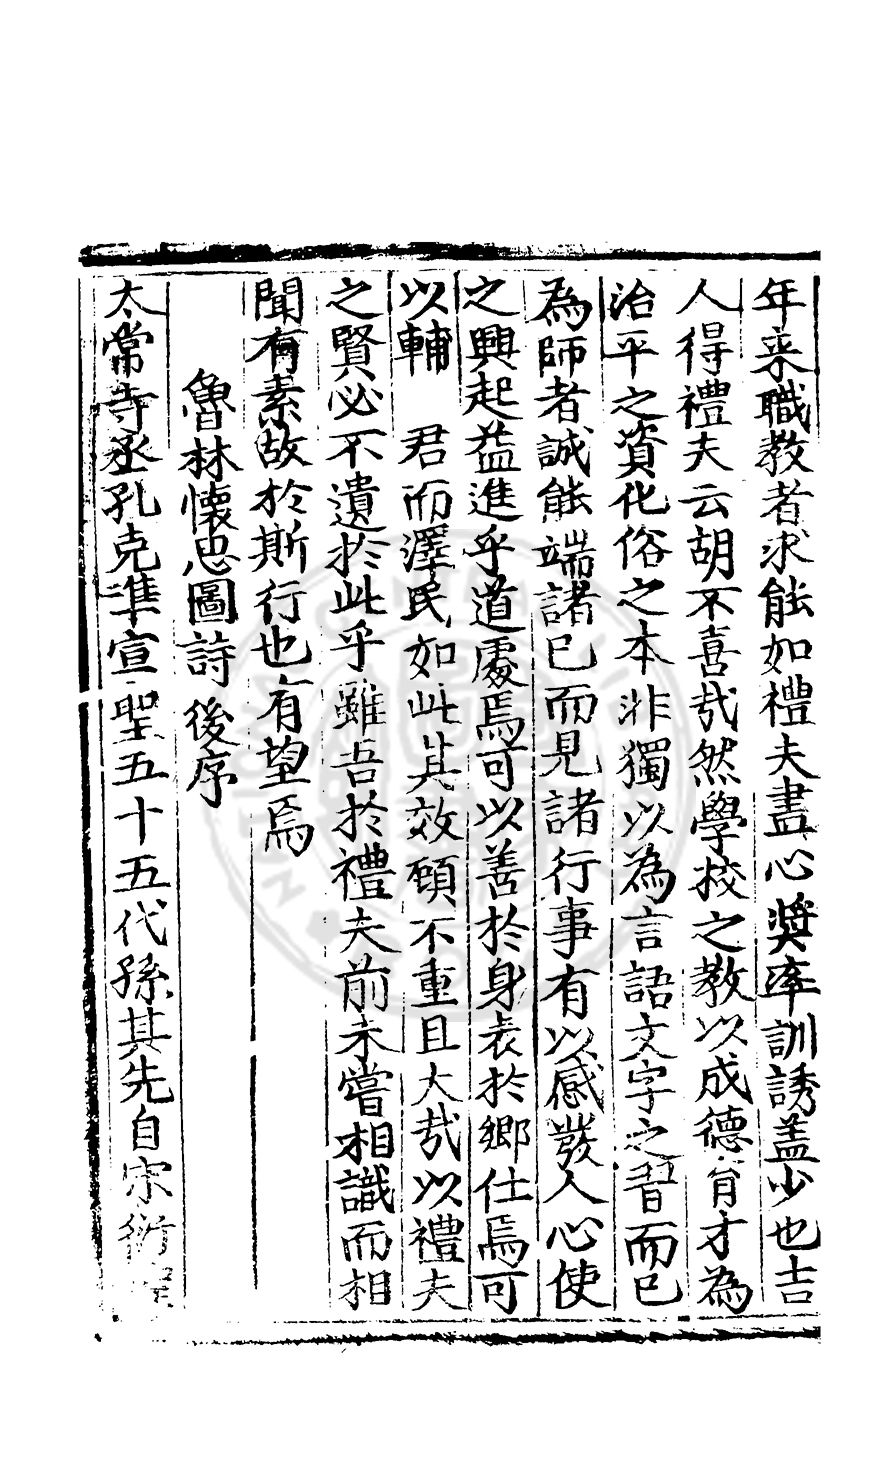 年来職教者求能如禮夫盡心奨率訓誘盖少也吉
人得禮夫云胡不喜㢤然學校之教以成德育才為
治平之資化俗之本非獨以為言語文字之習而已
為師者誠能端諸已而見諸行事有以感發人心使
之興起益進乎道處焉可以善於身表於郷仕焉可
以輔　君而澤民如此其效頋不重且大㢤以禮夫
之賢必不遺於此乎雖吾於禮夫前未嘗相識而相
聞有素故於斯行也有望焉
魯林懷思圖詩後序
太常寺丞孔克準宣聖五十五代孫其先自宋衍